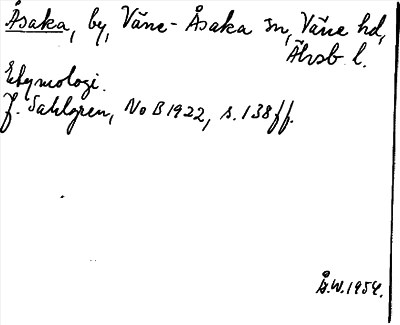 Åsaka, by, Väne-Åsaka sn, Väne hd,
Älvsb l.
Etymologi.
J. Sahlgren, NoB 1922, s. 138 ff.
Å.W. 1954.